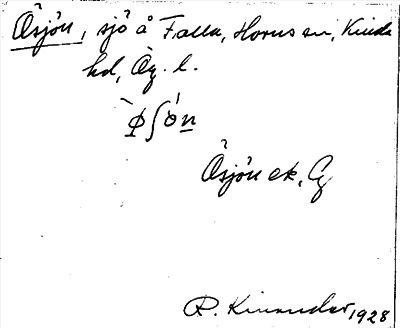 Ösjön, sjö å Falla, Horns sn, Kinda
hd, Ög. l.
`ø∫ó̲n̲
Ösjön ek, Cg
R. Kinander 1928